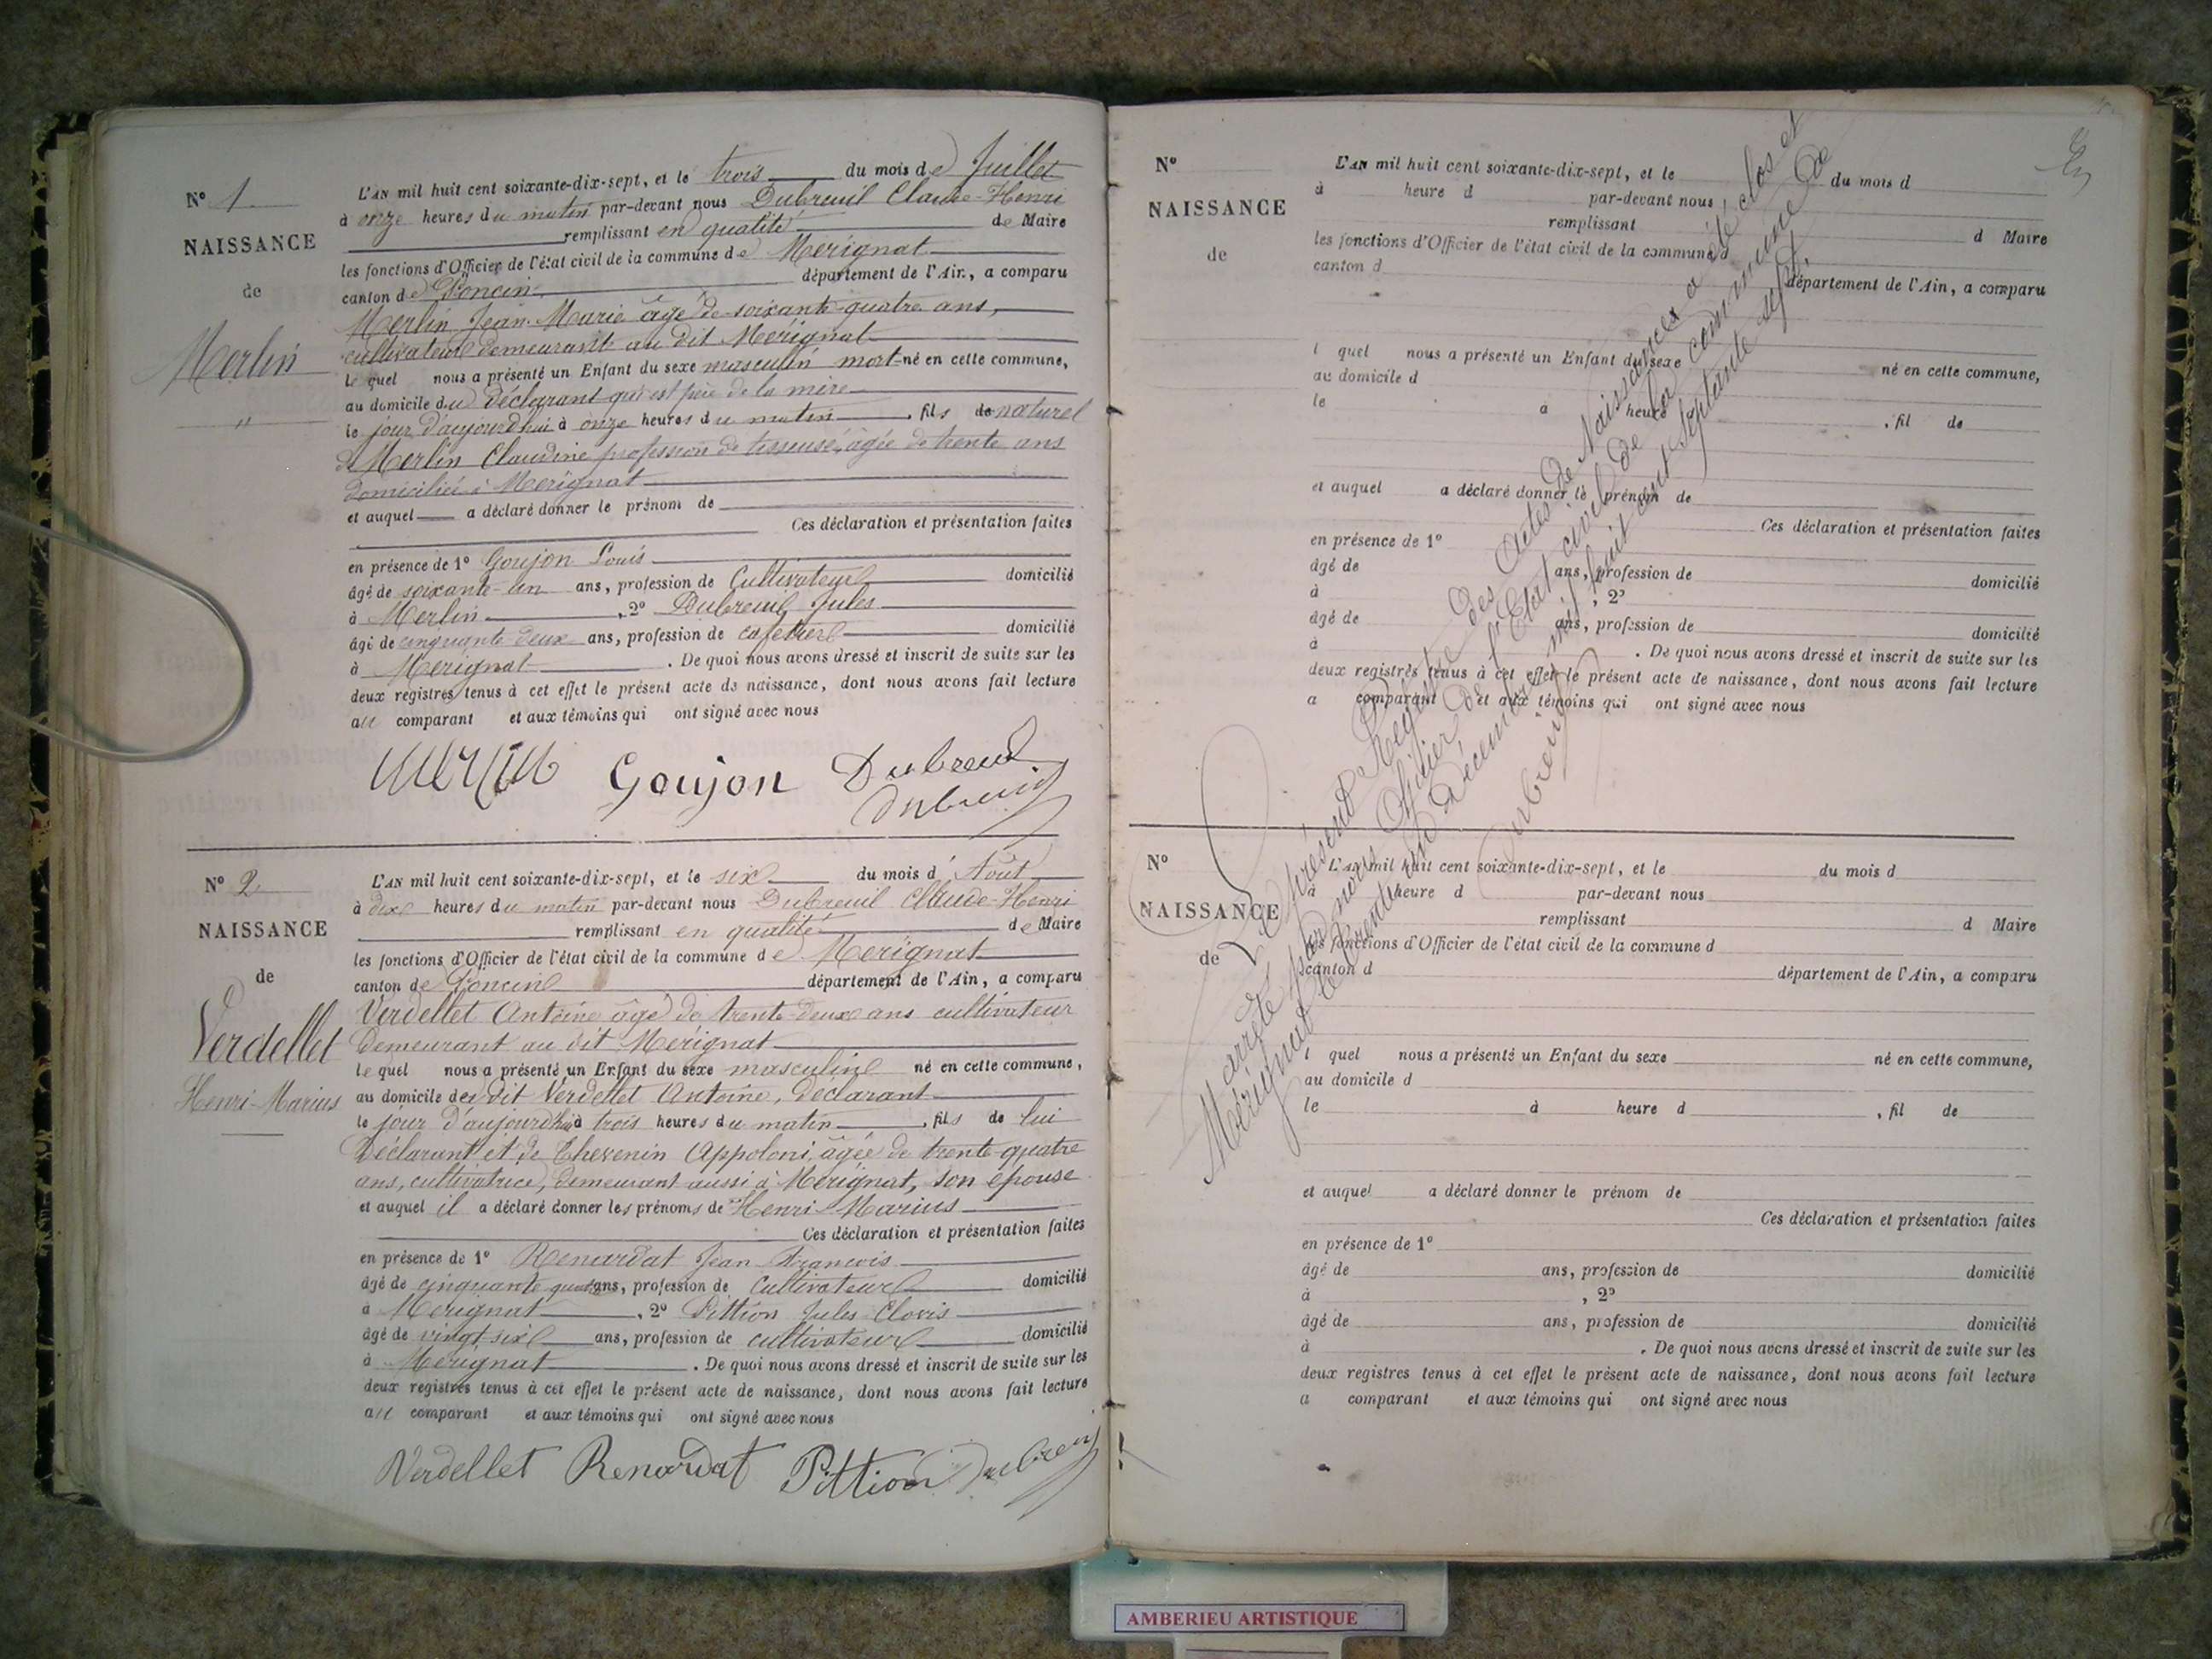 N° 1
NAISSANCE
de
Merlin
"
L'AN mil huit cent soixante-dix-sept, et le trois du mois de Juillet
à onze heures du matin par-devant nous Dubreuil Claude-Henri
remplissant en qualité de Maire
les fonctions d'Officier de l'état civil de la commune de Mérignat
canton de Poncin département de l'Ain, a comparu
Merlin Jean-Marie âgé de soixante-quatre ans,
cultivateur demeurant au dit Mérignat
lequel nous a présenté un Enfant du sexe masculin mort-né en cette commune,
au domicile du déclarant qui est père de la mère
le jour d'aujourd'hui à onze heures du matin, fils de naturel
de Merlin Claudine profession de tisseuse, âgée de trente ans
domiciliée à Mérignat
et auquel a déclaré donner le prénom de
Ces déclaration et présentation faites
en présence de 1° Goujon Louis
âgé de soixante-un ans, profession de Cultivateur domicilié
à Merlin, 2° Dubreuil Jules
âgé de cinquante-deux ans, profession de cafetier domicilié
à Mérignat. De quoi nous avons dressé et inscrit de suite sur les
deux registres tenus à cet effet le présent acte de naissance, dont nous avons fait lecture
au comparant et aux témoins qui ont signé avec nous
Merlin Goujon Dubreuil
Dubreuil
N° 2
NAISSANCE
de
Verdellet
Henri-Marius
L'AN mil huit cent soixante-dix-sept, et le six du mois d'Août
à dix heures du matin par-devant nous Dubreuil Claude-Henri
remplissant en qualité de Maire
les fonctions d'Officier de l'état civil de la commune de Mérignat
canton de Poncin département de l'Ain, a comparu
Verdellet Antoine âgé de trente-deux ans cultivateur
demeurant au dit Mérignat
lequel nous a présenté un Enfant du sexe masculin né en cette commune,
au domicile de dit Verdellet Antoine, déclarant
le jour d'aujourd'hui à trois heures du matin, fils de lui
déclarant et de Thevenin Appoloni, âgée de trente-quatre
ans, cultivatrice, demeurant aussi à Mérignat, son épouse
et auquel il a déclaré donner les prénoms de Henri-Marius
Ces déclaration et présentation faites
en présence de 1° Renardat Jean François
âgé de cinquante quatre ans, profession de Cultivateur domicilié
à Mérignat, 2° Pittion Jules Clovis
âgé de vingt-six ans, profession de cultivateur domicilié
à Mérignat. De quoi nous avons dressé et inscrit de suite sur les
deux registres tenus à cet effet le présent acte de naissance, dont nous avons fait lecture
au comparant et aux témoins qui ont signé avec nous
Verdellet Renardat Pittion Dubreuil
N°
NAISSANCE
de
L'AN mil huit cent soixante-dix-sept, et le du mois d
à heure d par-devant nous
remplissant d Maire
les fonctions d'Officier de l'état civil de la commune d
canton d département de l'Ain, a comparu
l quel nous a présenté un Enfant du sexe né en cette commune,
au domicile d
le à heure, fil de
et auquel a déclaré donner le prénom de
Ces déclaration et présentation faites
en présence de 1°
âgé de ans, profession de domicilié
à, 2°
âgé de ans, profession de domicilié
à. De quoi nous avons dressé et inscrit de suite sur les
deux registres tenus à cet effet le présent acte de naissance, dont nous avons fait lecture
a comparant et aux témoins qui ont signé avec nous
Le présent Registre des Actes de Naissances a été clos et
arrêté par nous Officier de l'Etat civil de la commune de
Mérignat le trente un décembre mil huit cent septante sept.
Dubreuil
N°
NAISSANCE
de
L'AN mil huit cent soixante-dix-sept, et le du mois d
à heure d par-devant nous
remplissant d Maire
les fonctions d'Officier de l'état civil de la commune d
canton d département de l'Ain, a comparu
l quel nous a présenté un Enfant du sexe né en cette commune,
au domicile d
le à heure d, fil de
et auquel a déclaré donner le prénom de
Ces déclaration et présentation faites
en présence de 1°
âgé de ans, profession de domicilié
à, 2°
âgé de ans, profession de domicilié
à. De quoi nous avons dressé et inscrit de suite sur les
deux registres tenus à cet effet le présent acte de naissance, dont nous avons fait lecture
a comparant et aux témoins qui ont signé avec nous
AMBERIEU ARTISTIQUE